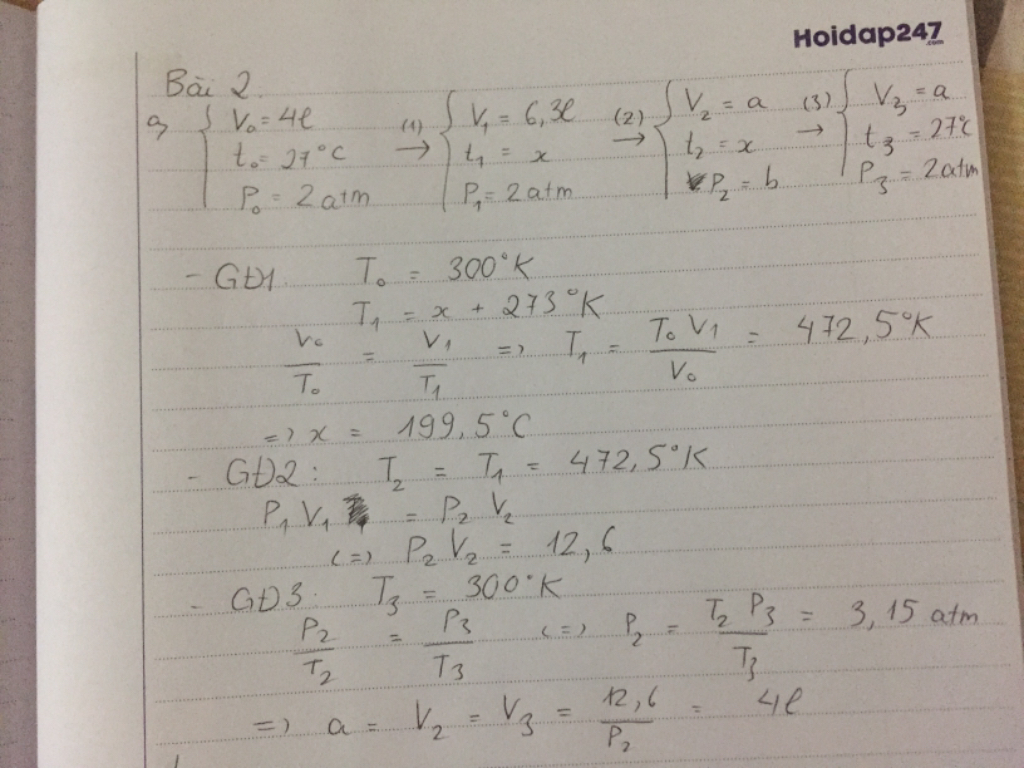 Hoidap247
.com
Bài 2.
a, { V₀ = 4l (1) { V₁ = 6,3l (2) { V₂ = a (3) { V₃ = a
t₀ = 27°C → t₁ = x → t₂ = x → t₃ = 27°C
P₀ = 2 atm P₁ = 2 atm P₂ = b P₃ = 2 atm
- GĐ1. T₀ = 300°K
T₁ = x + 273°K
V₀/T₀ = V₁/T₁ => T₁ = T₀ V₁/V₀ = 472,5°K
=> x = 199,5°C
- GĐ2: T₂ = T₁ = 472,5°K
P₁ V₁ = P₂ V₂
(=) P₂ V₂ = 12,6
- GĐ3. T₃ = 300°K
P₂/T₂ = P₃/T₃ (=) P₂ = T₂ P₃/T₃ = 3,15 atm
=> a = V₂ = V₃ = 12,6/P₂ = 4l